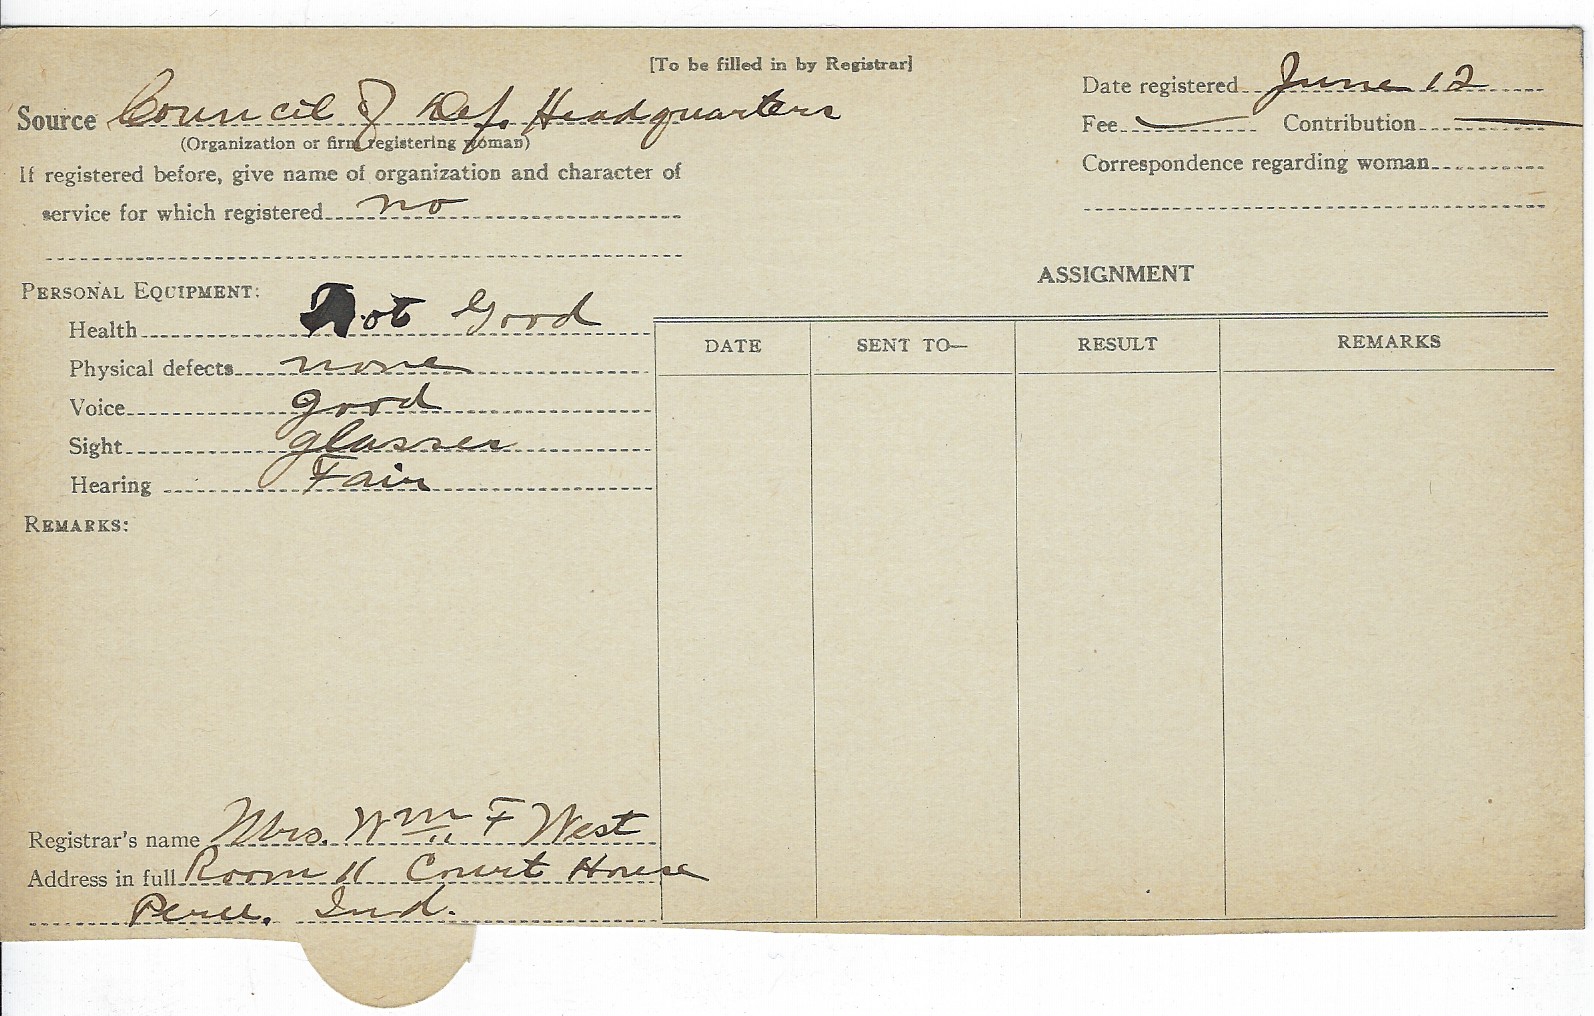 [To be filled in by Registrar]
Source Council of Def. Headquarters
(Organization or firm registering woman)
If registered before, give name of organization and character of
service for which registered no
Date registered June 12
Fee — Contribution —
Correspondence regarding woman
PERSONAL EQUIPMENT:
Health Not Good
Physical defects none
Voice good
Sight glasses
Hearing Fair
REMARKS:
ASSIGNMENT
DATE SENT TO— RESULT REMARKS
Registrar's name Mrs. Wm F West
Address in full Room 11 Court House
Peru, Ind.